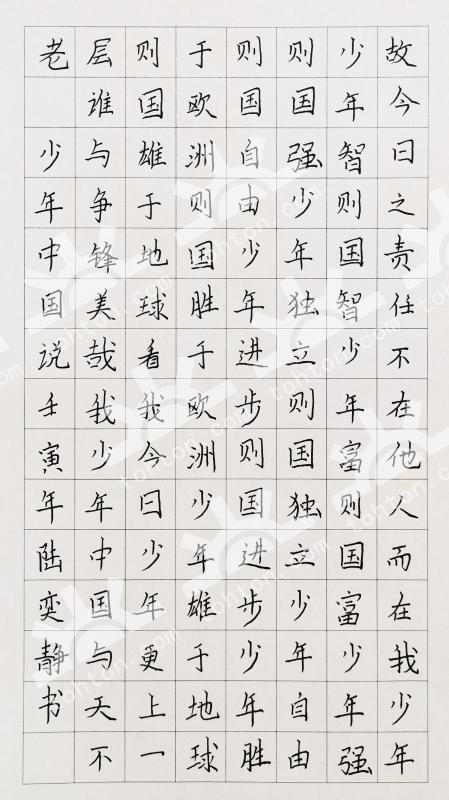 故今日之责任不在他人而在我少年
少年智则国智少年富则国富少年强
则国强少年独立则国独立少年自由
则国自由少年进步则国进步少年胜
于欧洲则国胜于欧洲少年雄于地球
则国雄于地球看我今日少年更上一
层谁与争锋美哉我少年中国与天不
老 少年中国说壬寅年陆奕静书
tohton.com